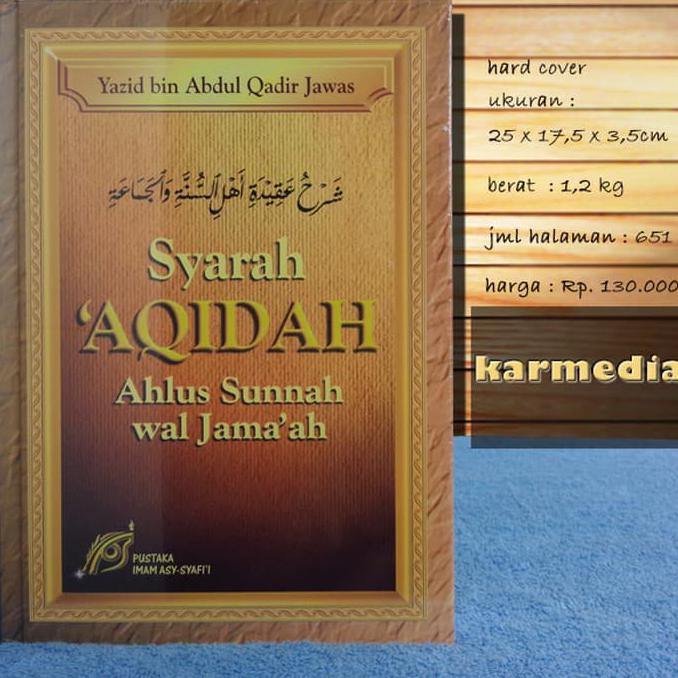 Yazid bin Abdul Qadir Jawas
شَرْحُ عَقِيْدَةِ أَهْلِ السُّنَّةِ وَالْجَمَاعَةِ
Syarah
'AQIDAH
Ahlus Sunnah
wal Jama'ah
PUSTAKA
IMAM ASY-SYAFI'I
hard cover
ukuran :
25 x 17,5 x 3,5cm
berat : 1,2 kg
jml halaman : 651
harga : Rp. 130.000
karmedia